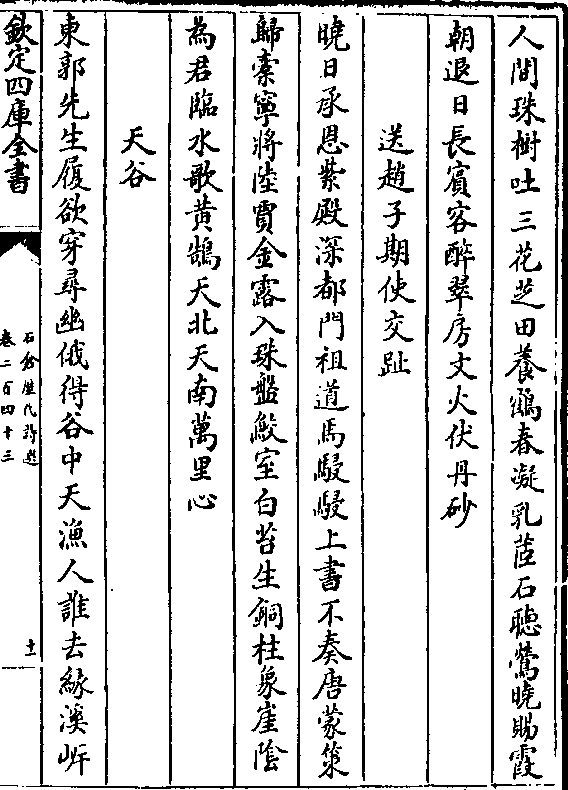 人間珠樹吐三花芝田養鶴春凝乳茁石聽鶯曉賜霞
朝退日長賓客醉翠房文火伏丹砂
送趙子期使交趾
曉日承恩紫殿深都門祖道馬駸駸上書不奏唐蒙策
歸橐寧將陸賈金露入珠盤鮫室白苔生銅柱象崖陰
為君臨水歌黃鵠天北天南萬里心
天谷
東郭先生履欲穿尋幽俄得谷中天漁人誰去緣溪岍
欽定四庫全書
石倉歷代詩選
卷二百四十三
十二